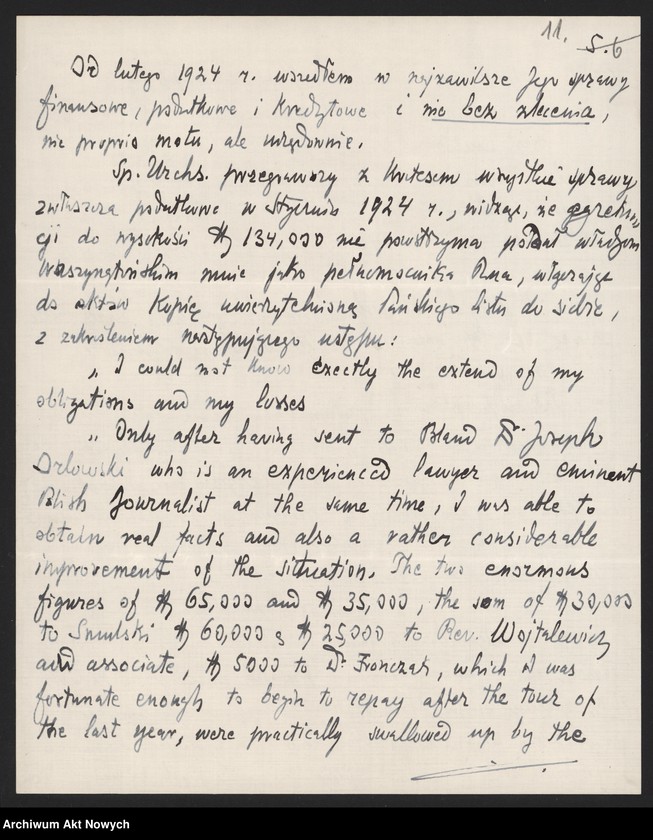 11.
5.6
Od lutego 1924 r. wszedłem w najzawilsze Jego sprawy
finansowe, podatkowe i Kredytowe i nie bez zlecenia,
nie proprio motu, ale urzędownie.
Sp. Urchs. przegrawszy z Kretesem wszystkie sprawy
zwłaszcza podatkowe w Styczniu 1924 r., widząc, że
cji do wysokości $ 134,000 nie powstrzyma władzom
Waszyngtońskim mnie jako pełnomocnika Pana, włączając
do aktów Kopię uwierzytelnioną Pańskiego listu do siebie,
z zakreśleniem następującego ustępu:
„ I could not know exectly the extend of my
obligations and my losses
„ Only after having sent to Poland Dr. Joseph
Orlowski who is an experienced lawyer and eminent
Polish Journalist at the same time, I was able to
obtain real facts and also a rather considerable
improvement of the situation. The two enormous
figures of $ 65,000 and $ 35,000, the sum of $ 30,000
to Smulski $ 60,000 & $ 25000 to Rev. Wojtalewicz
and associate, $ 5000 to Dr. Fronczak, which I was
fortunate enough to begin to repay after the tour of
the last year, were practically swallowed up by the
Archiwum Akt Nowych